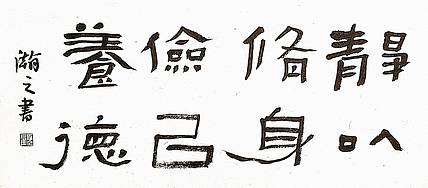 靜以
脩身
儉㠯
養德
瀚之書